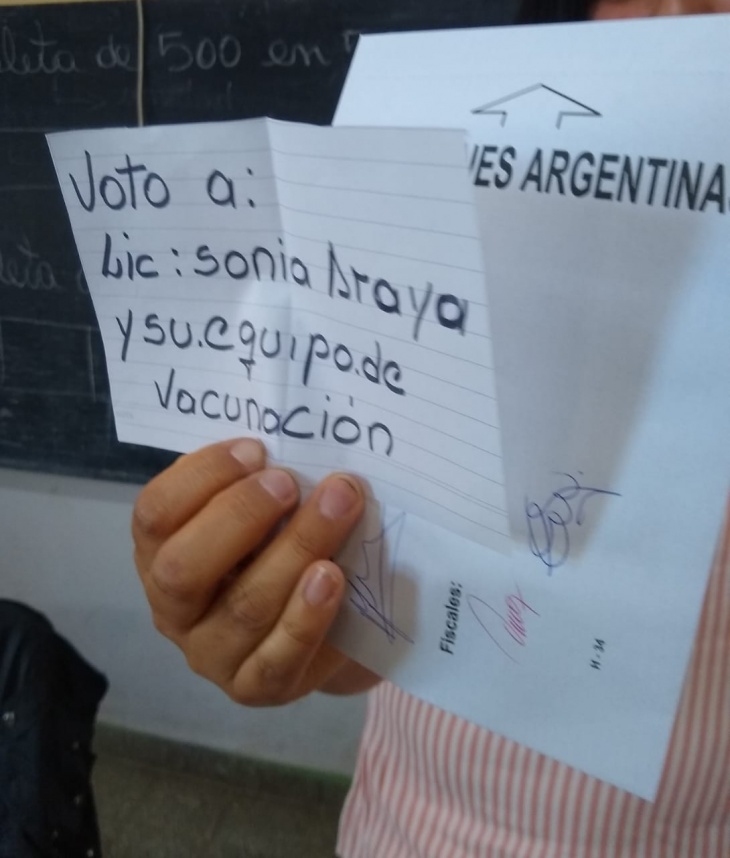 leta de 500 en
Voto a:
Lic: sonia Araya
y su.equipo.de
vacunación
ES ARGENTINA
Fiscales:
H - 34